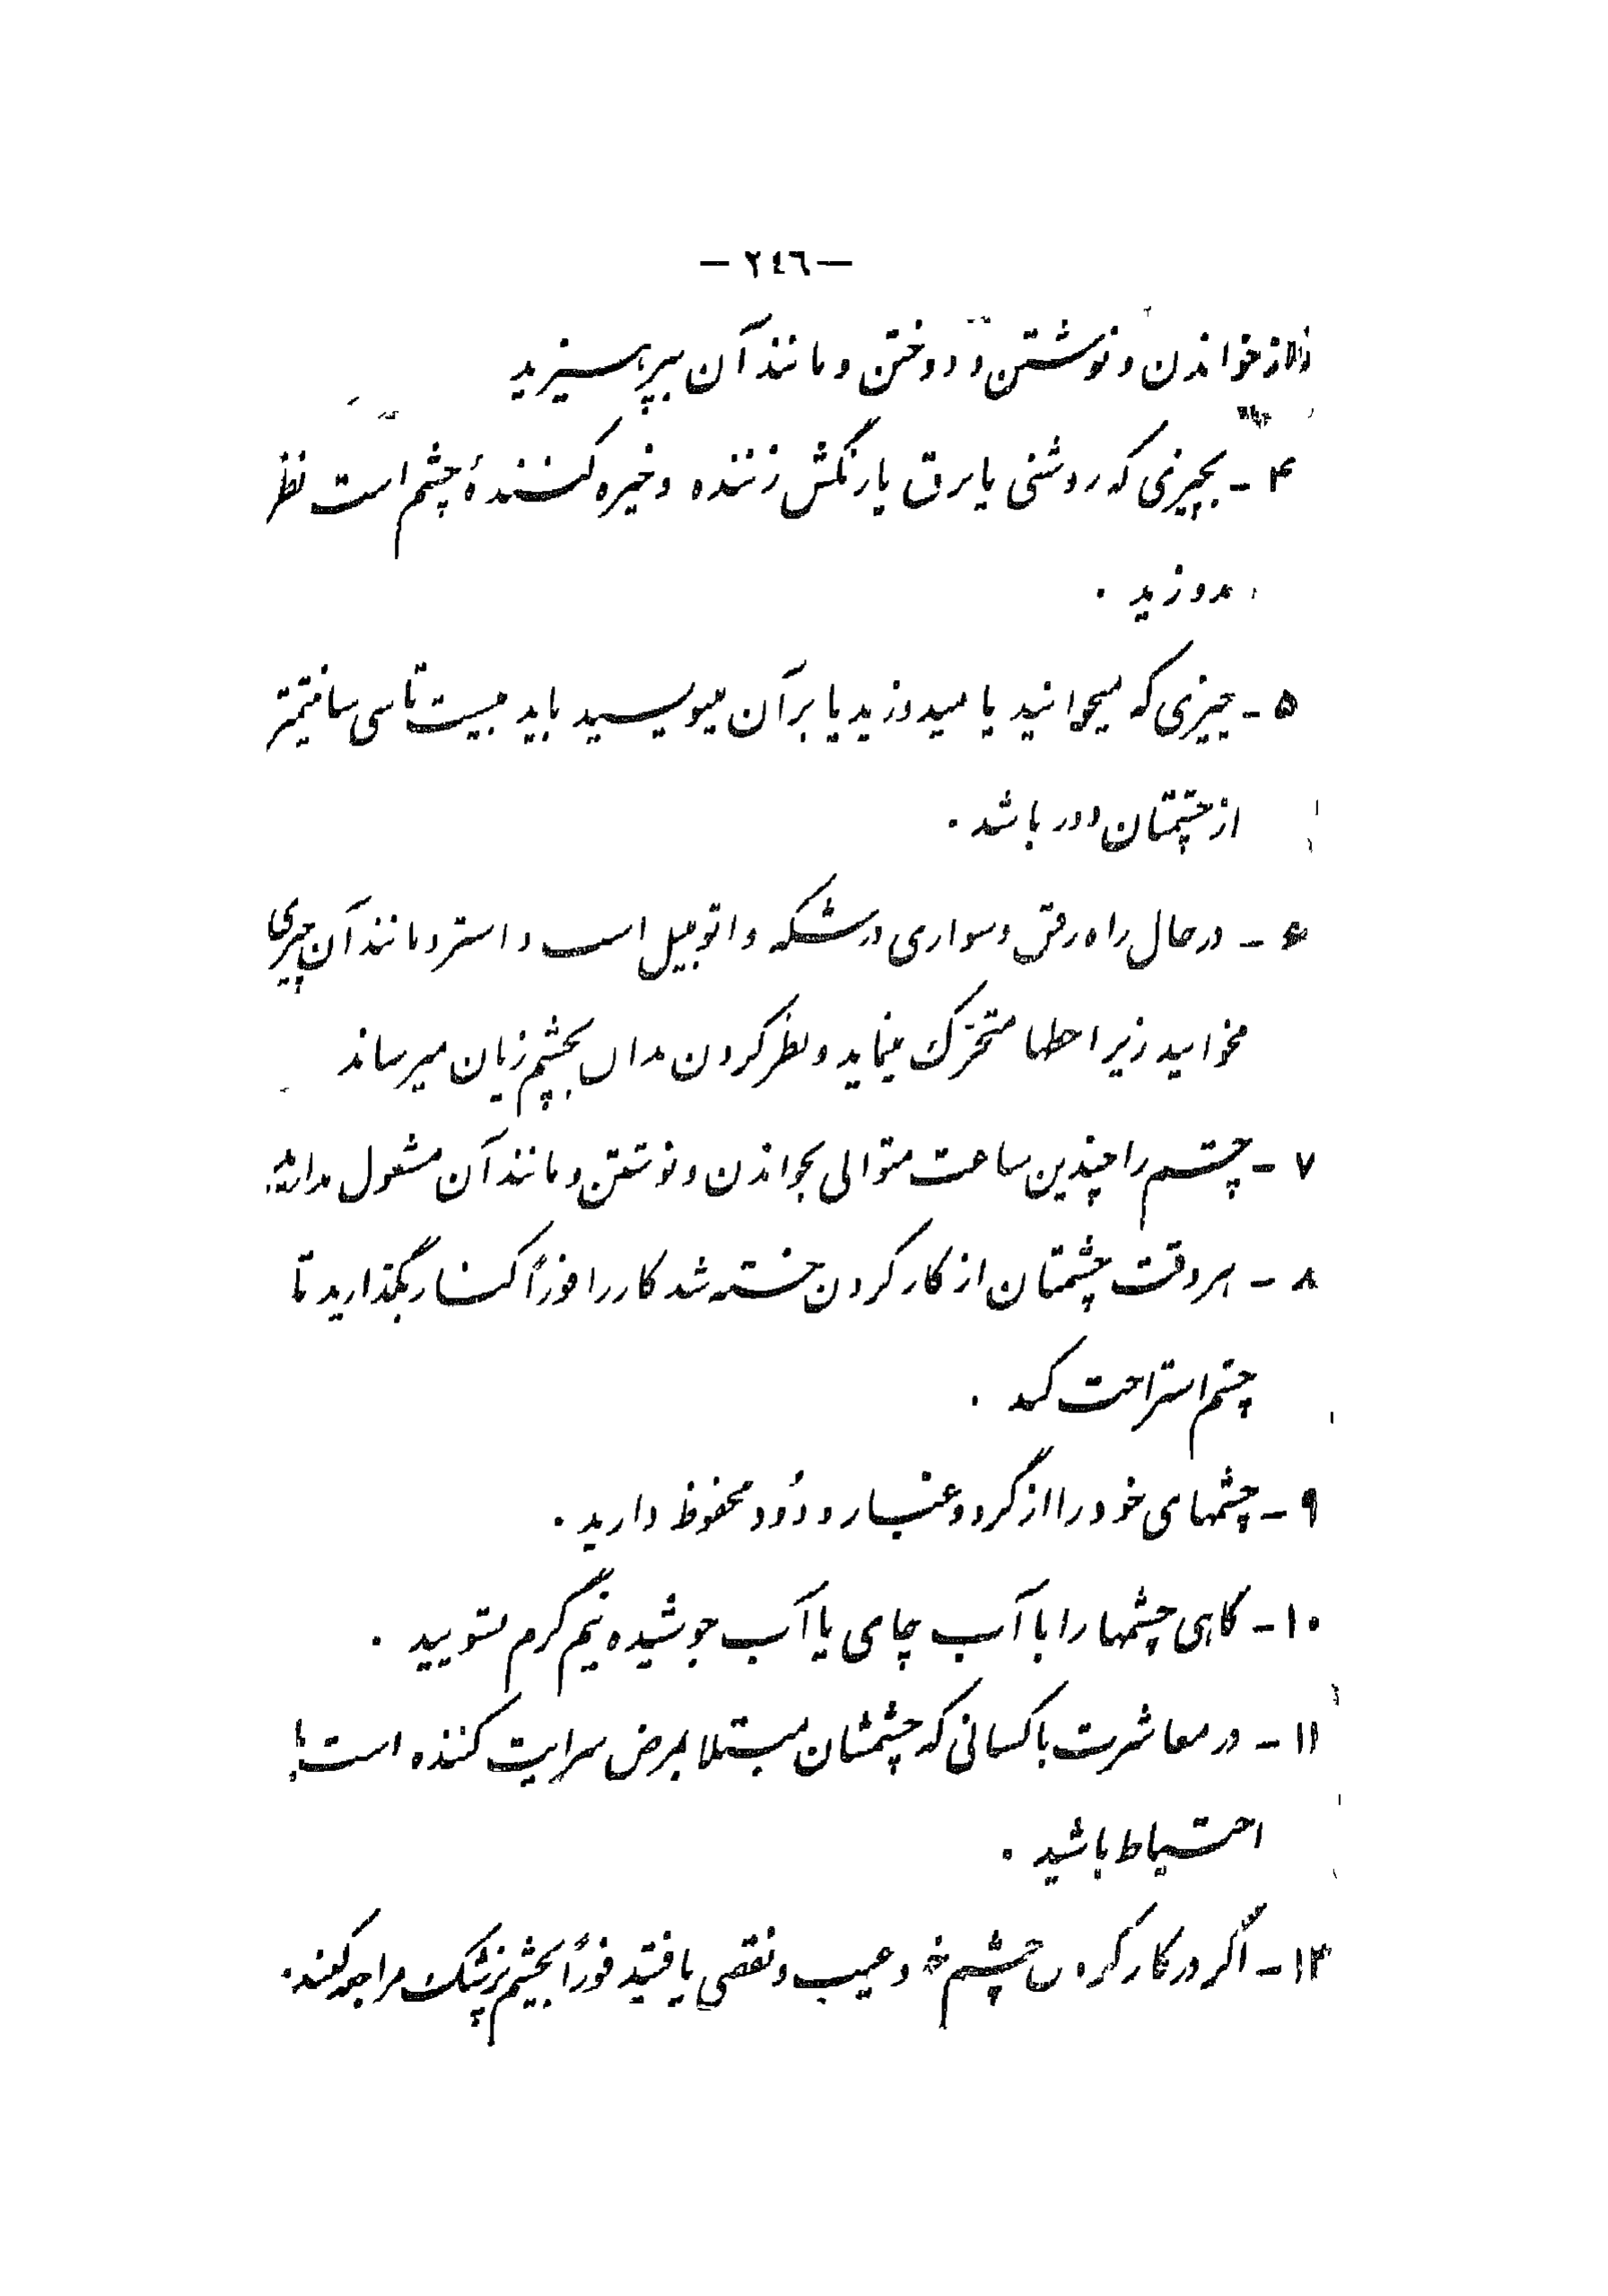 — ٢٤٦ —
از خواندن و نوشتن و دوختن و مانند آن بپرهیزید
۴ - بچیزی که روشنی یا برق یا رنگش زننده و خیره کنندهٔ چشم است نظر
مدوزید .
۵ - چیزی که میخوانید یا میدوزید یا بر آن مینویسید باید بیست تا سی سانتیمتر
از چشمتان دور باشد .
۶ - در حال راه رفتن و سواری درشکه و اتومبیل است و استر و مانند آن چیزی
مخوانید زیرا خطها متحرّک مینماید و نظر کردن بدان بچشم زیان میرساند
۷ - چشم را چندین ساعت متوالی بخواندن و نوشتن و مانند آن مشغول مدارید
۸ - هر وقت چشمتان از کار کردن خسته شد کار را فوراً کنار بگذارید تا
چشم استراحت کند .
۹ - چشمهای خود را از گرد و غبار و دُود محفوظ دارید .
۱۰ - گاهی چشمها را با آب چای یا آب جوشیده نیم گرم بشویید .
۱۱ - در معاشرت با کسانی که چشمشان مبتلا بمرض سرایت کننده است با
احتیاط باشید .
۱۲ - اگر در کار کردن چشم خود عیب و نقصی یافتید فوراً بچشم پزشک مراجعه کنید .